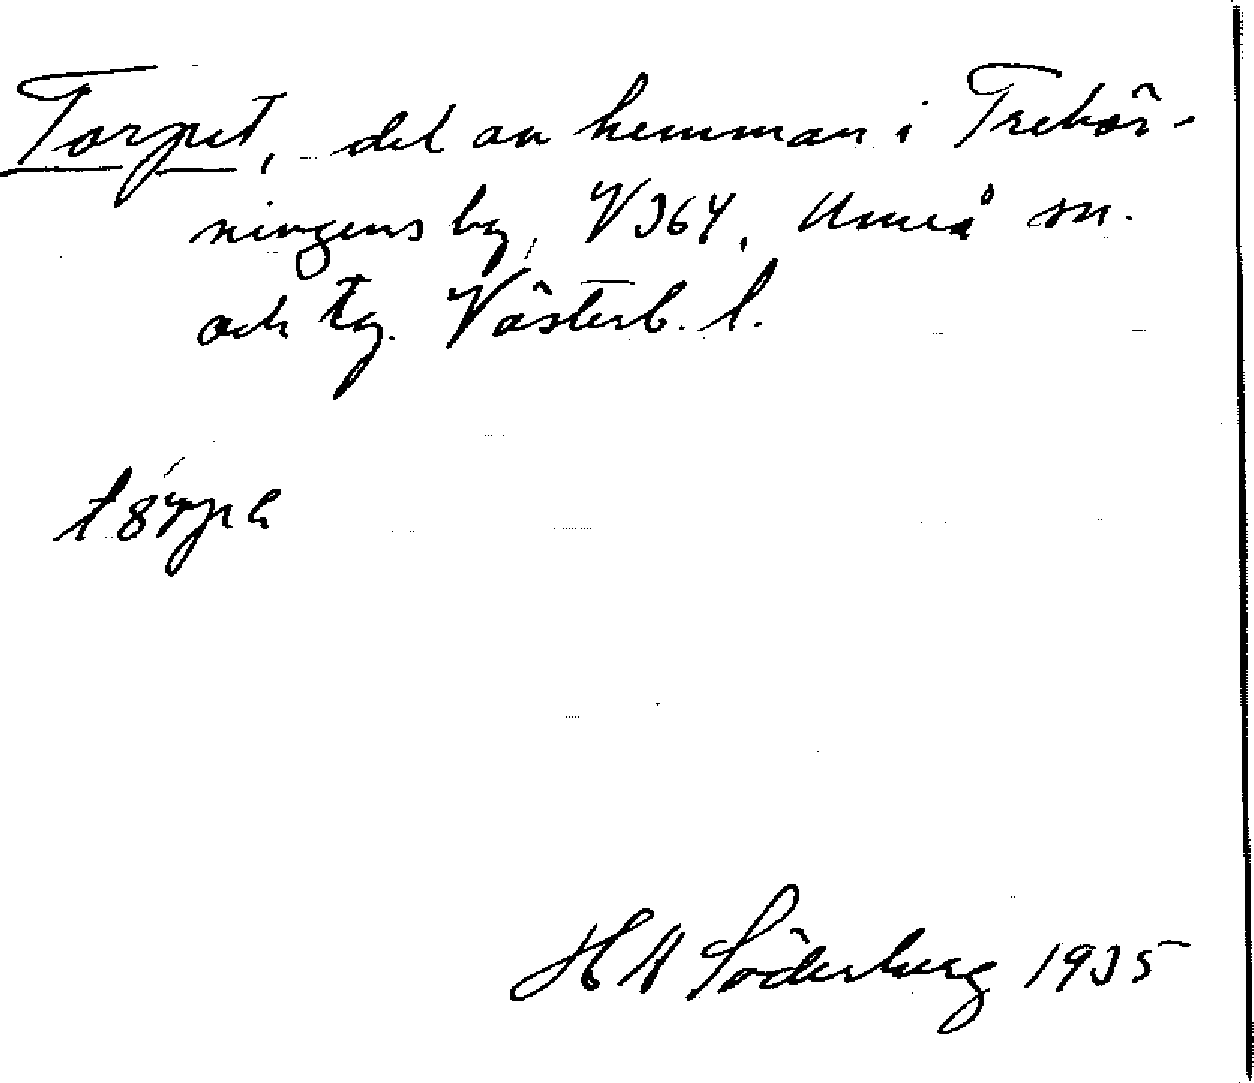 Torpet, del av hemman i Trehör-
ningens by, V364, Umeå sn.
och tg. Västerb. l.
H A Söderberg 1935